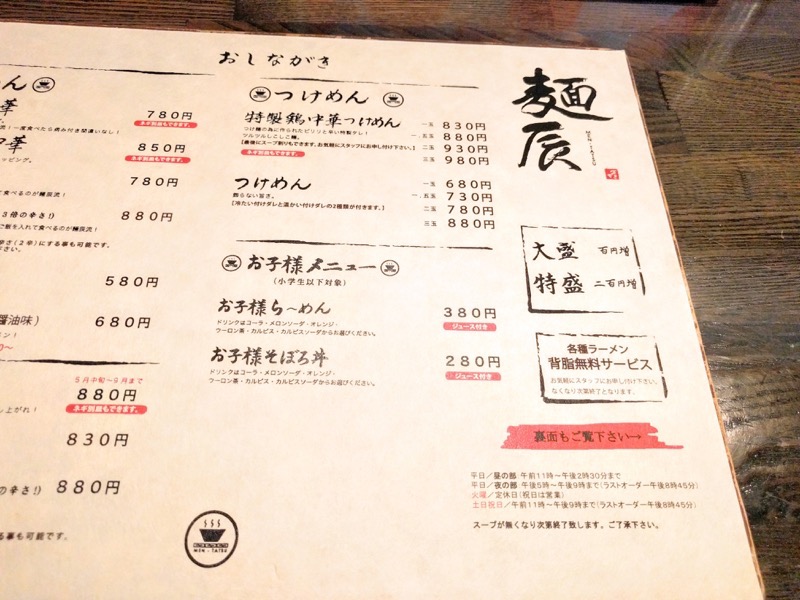 おしながき
めん
華
780円
ネギ別皿もできます。
流！一度食べたら病み付き間違いなし！
中華
850円
ネギ別皿もできます。
ッピング。
780円
て食べるのが麺辰流！
3倍の辛さ!)
880円
ご飯を入れて食べるのが麺辰流！
辛さ(2辛)にする事も可能です。
ださい。
580円
醤油味)
680円
メン！
5月中旬～9月まで
880円
し上がれ！
ネギ別皿もできます。
830円
の辛さ!)
880円
する事も可能です。
つけめん
特製鶏中華つけめん
つけ麺の為に作られたピリッと辛い特製ダレ！
ツルツルしこしこ麺。
【最後にスープ割りもできます。お気軽にスタッフにお申し付け下さい。】
ネギ別皿もできます。
一玉 830円
一.五玉 880円
二玉 930円
三玉 980円
つけめん
飾らない旨さ。
【冷たい付けダレと温かい付けダレの2種類が付きます。】
一玉 680円
一.五玉 730円
二玉 780円
三玉 880円
お子様メニュー
(小学生以下対象)
お子様ら～めん
380円
ドリンクはコーラ・メロンソーダ・オレンジ・
ウーロン茶・カルピス・カルピスソーダからお選びください。
ジュース付き
お子様そぼろ丼
280円
ドリンクはコーラ・メロンソーダ・オレンジ・
ウーロン茶・カルピス・カルピスソーダからお選びください。
ジュース付き
MEN-TATSU
麺辰
MEN-TATSU
大盛 百円増
特盛 二百円増
各種ラーメン
背脂無料サービス
お気軽にスタッフにお申し付け下さい。
なくなり次第終了となります。
裏面もご覧下さい→
平日／昼の部：午前11時～午後2時30分まで
平日／夜の部：午後5時～午後9時まで(ラストオーダー午後8時45分)
火曜／定休日(祝日は営業)
土日祝日／午前11時～午後9時まで(ラストオーダー午後8時45分)
スープが無くなり次第終了致します。ご了承下さい。